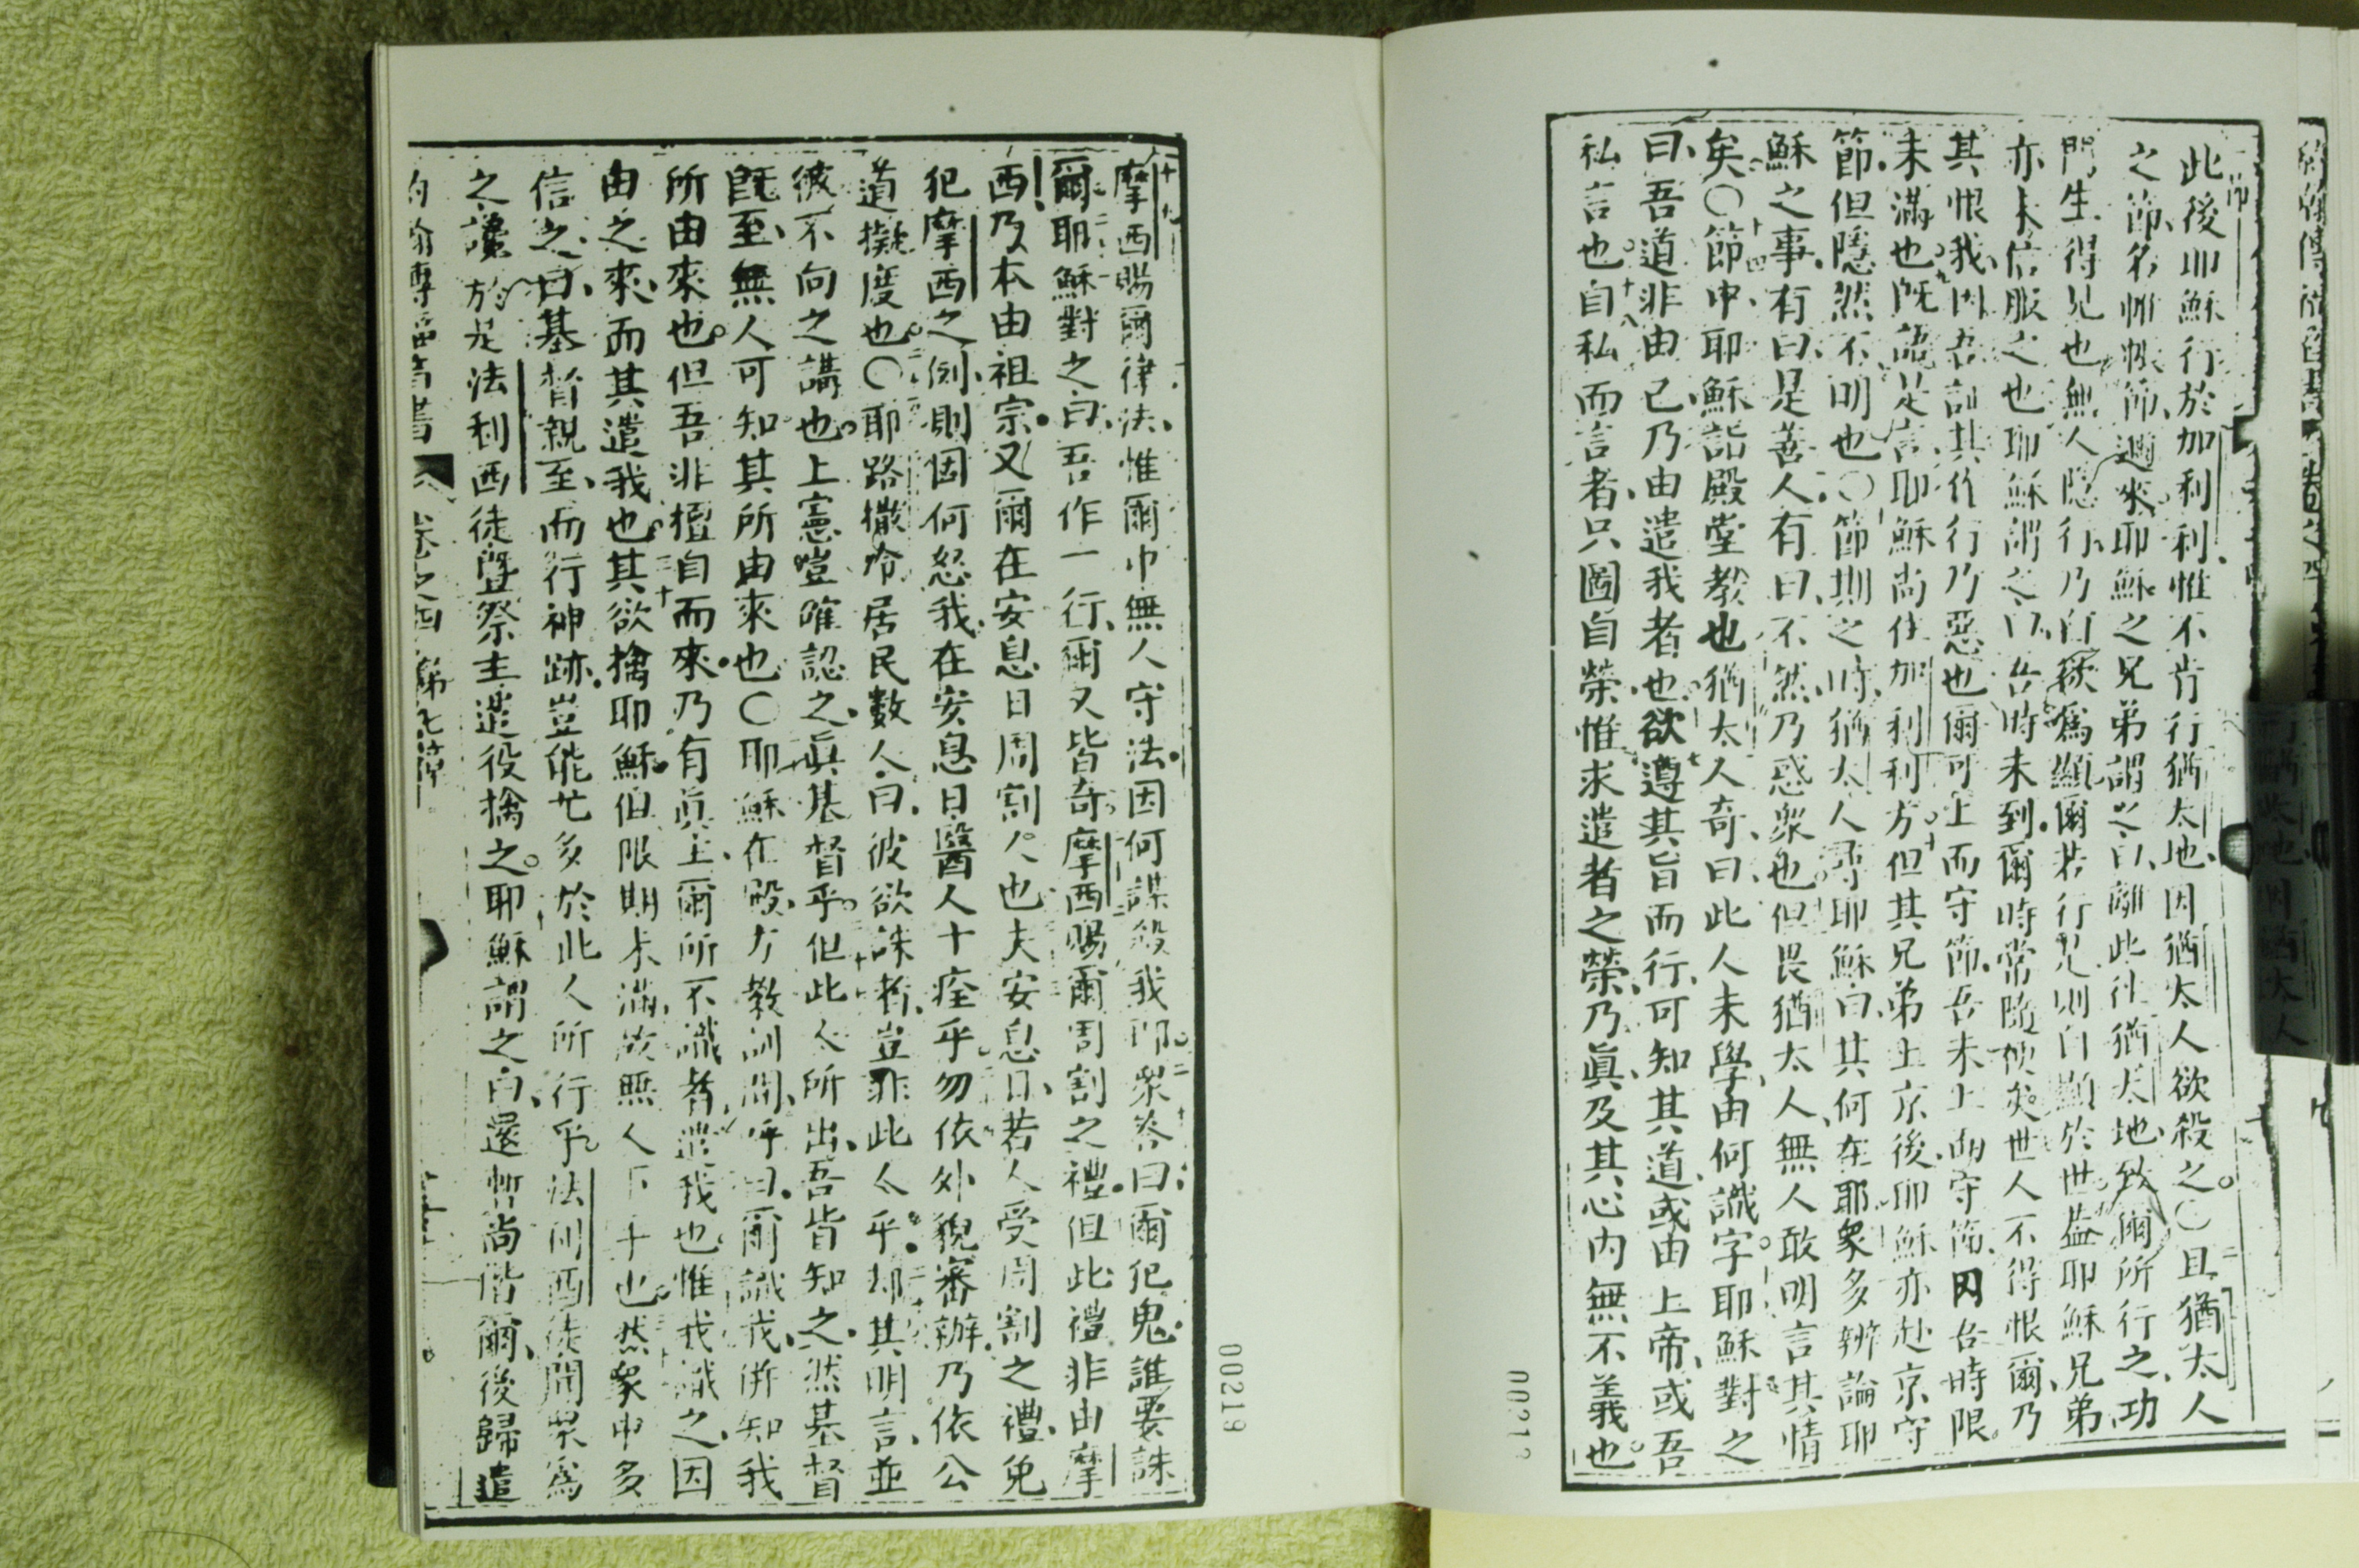 此後耶穌行於加利利、惟不肯行猶太地、因猶太人欲殺之。〇且猶太人
之節、名帷帳節、邇來。耶穌之兄弟謂之曰、離此往猶太地、致爾所行之功、
門生得見也。無人隱行、乃自欲為顯。爾若行此、則自顯於世。蓋耶穌兄弟
亦未信服之也。耶穌謂之曰、吾時未到、爾時常隨便矣。世人不得恨爾、乃
其恨我、因吾証其作行乃惡也。爾可上而守節、吾未上而守節、因吾時限
未滿也。既語是言、耶穌尚住加利利方。但其兄弟上京後、耶穌亦赴京守
節、但隱然不明也。〇節期之時、猶太人尋耶穌曰、其何在耶。眾多辨論耶
穌之事、有曰、是善人。有曰、不然、乃惑眾也。但畏猶太人、無人敢明言其情
矣。〇節中耶穌詣殿堂教也。猶太人奇曰、此人未學、由何識字。耶穌對之
曰、吾道非由己、乃由遣我者也。欲遵其旨而行、可知其道、或由上帝、或吾
私言也。自私而言者、只圖自榮、惟求遣者之榮、乃真、及其心內無不義也。
00218
摩西賜爾律法、惟爾中無人守法。因何謀殺我耶。眾答曰、爾犯鬼、誰要誅
爾。耶穌對之曰、吾作一行、爾又皆奇。摩西賜爾周割之禮、但此禮非由摩
西、乃本由祖宗。又爾在安息日周割人也。夫安息日、若人受周割之禮、免
犯摩西之例、則因何怒我、在安息日醫人十痊乎。勿依外貌審辦、乃依公
道擬度也。〇耶路撒冷居民數人曰、彼欲誅者、豈非此人乎。却其明言、並
彼不向之講也。上憲豈確認之真基督乎。但此人所出、吾皆知之。然基督
既至、無人可知其所由來也。〇耶穌在殿、方教訓間、呼曰、爾識我、併知我
所由來也。但吾非擅自而來、乃有真主、爾所不識者、遣我也。惟我識之、因
由之來、而其遣我也。其欲擒耶穌、但限期未滿、故無人下手也。然眾中多
信之曰、基督親至、而行神跡、豈能比多於此人所行乎。法利西徒聞眾為
之讓、於是法利西徒暨祭主遣役擒之。耶穌謂之曰、還暫尚偕爾、後歸遣
約翰傳福音書 卷之四 第七章
00219